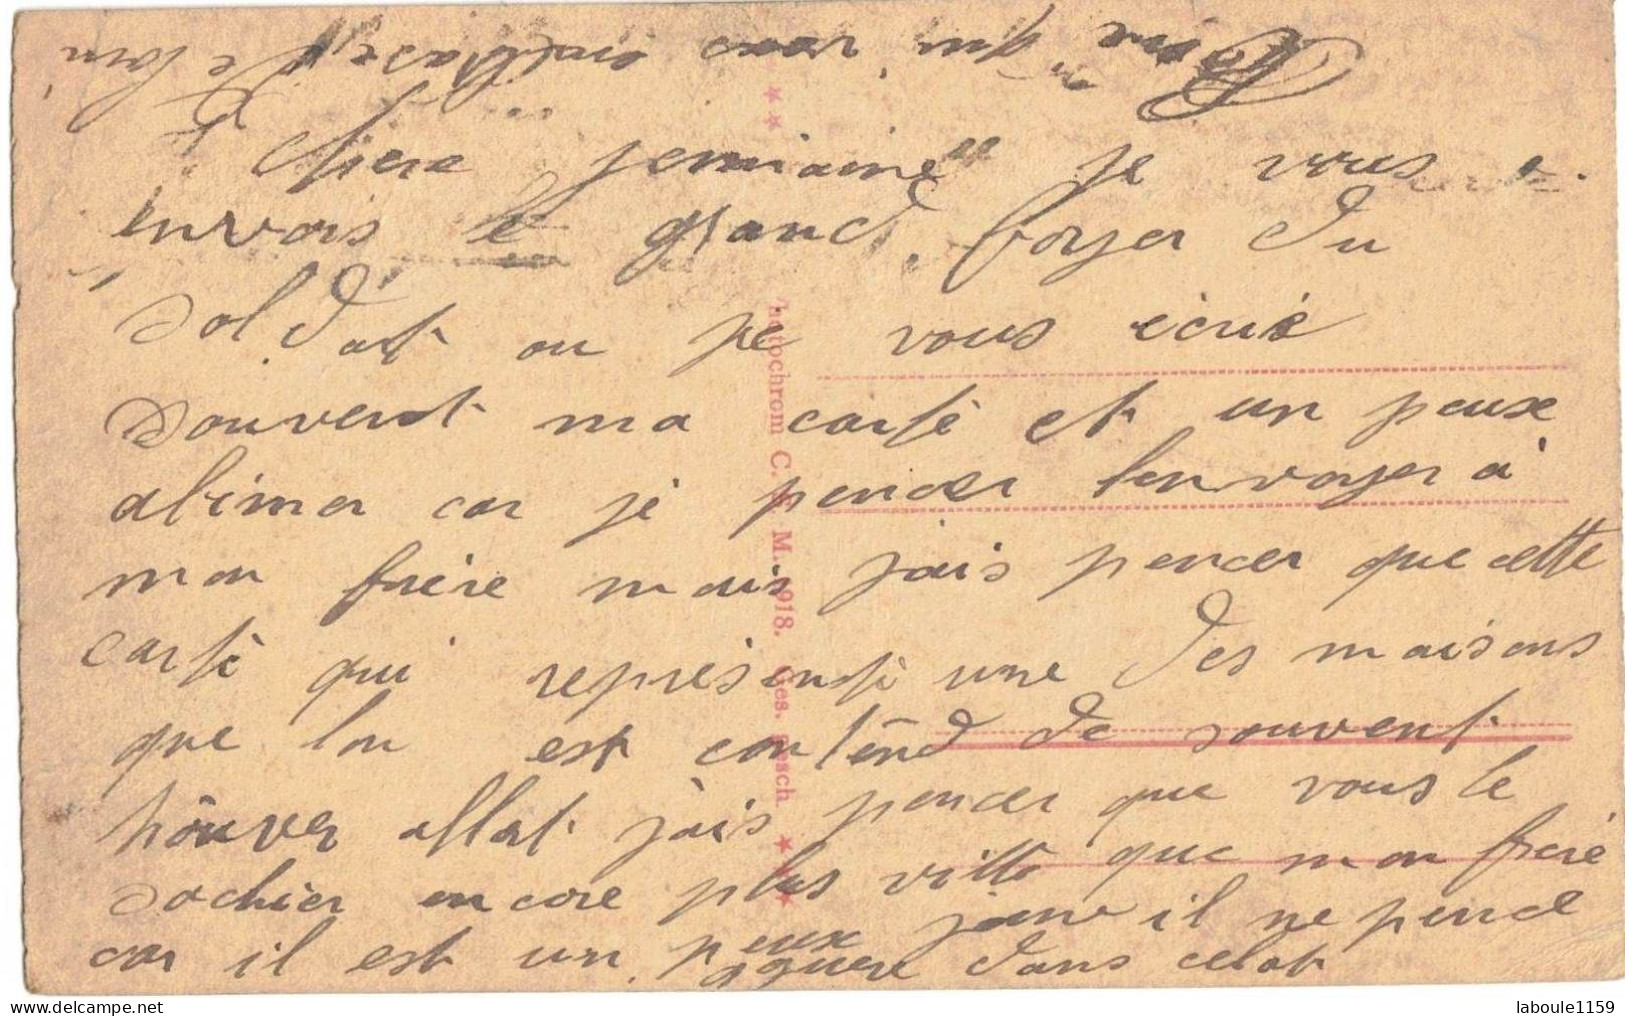 Chere jermaine" je vous
envois le grand foyer du
soldat ou je vous écrie
souvent ma carte et un peux
abimer car je pencer lenvoyer à
mon frère mais jais pencer que cette
carte qui représente une des maisons
que lon est contend de souvent
trouver allat jais pencer que vous le
sachier encore plus vitte que mon frère
car il est un peux jene il ne pence
gguere dans celat
René qui vous embrasse de loin
Photochrom C. M. 1918. Ges. Gesch.
laboule1159